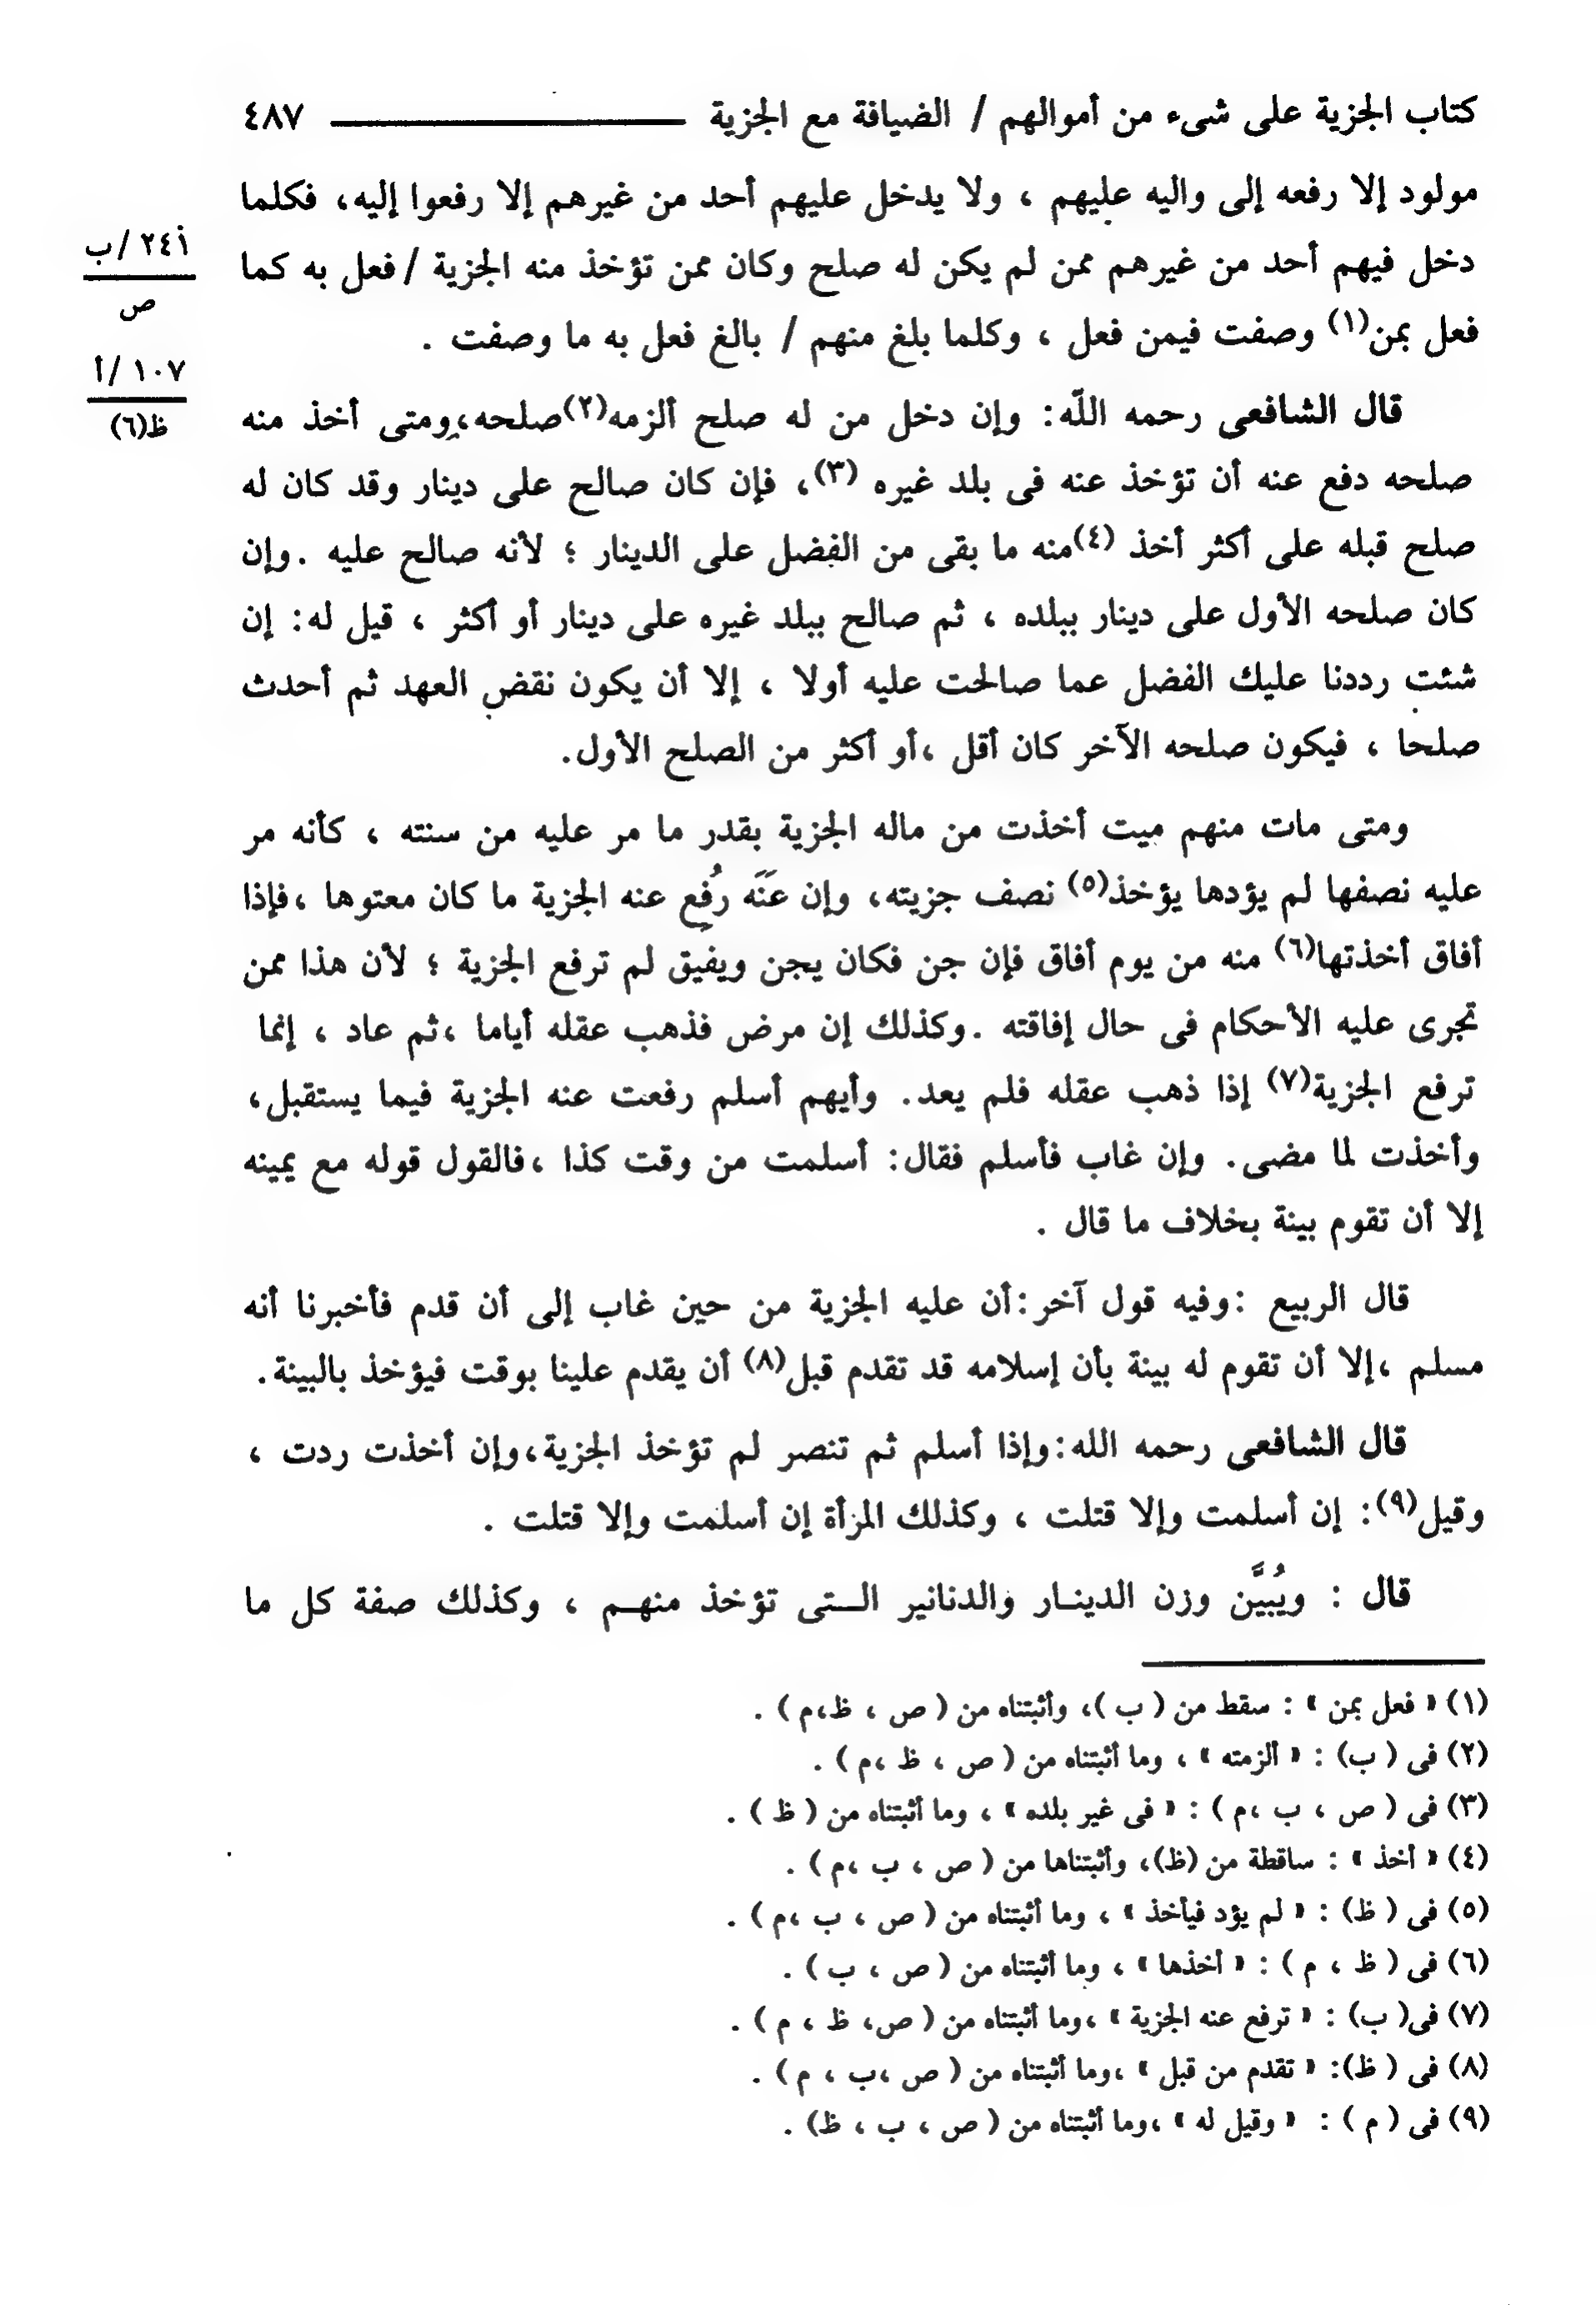 كتاب الجزية على شىء من أموالهم / الضيافة مع الجزية ـــــــــــ ٤٨٧
مولود إلا رفعه إلى واليه عليهم ، ولا يدخل عليهم أحد من غيرهم إلا رفعوا إليه، فكلما
دخل فيهم أحد من غيرهم ممن لم يكن له صلح وكان ممن تؤخذ منه الجزية / فعل به كما
فعل بمن(١) وصفت فيمن فعل ، وكلما بلغ منهم / بالغ فعل به ما وصفت .
٢٤أ / ب
ص
١٠٧ / أ
ظ(٦)
قال الشافعى رحمه اللّه: وإن دخل من له صلح ألزمه(٢) صلحه، ومتى أخذ منه
صلحه دفع عنه أن تؤخذ عنه فى بلد غيره (٣)، فإن كان صالح على دينار وقد كان له
صلح قبله على أكثر أخذ (٤) منه ما بقى من الفضل على الدينار ؛ لأنه صالح عليه . وإن
كان صلحه الأول على دينار ببلده ، ثم صالح ببلد غيره على دينار أو أكثر ، قيل له: إن
شئت رددنا عليك الفضل عما صالحت عليه أولا ، إلا أن يكون نقض العهد ثم أحدث
صلحا ، فيكون صلحه الآخر كان أقل ، أو أكثر من الصلح الأول.
ومتى مات منهم ميت أخذت من ماله الجزية بقدر ما مر عليه من سنته ، كأنه مر
عليه نصفها لم يؤدها يؤخذ(٥) نصف جزيته، وإن عَتَه رُفِع عنه الجزية ما كان معتوها ، فإذا
أفاق أخذتها(٦) منه من يوم أفاق فإن جن فكان يجن ويفيق لم ترفع الجزية ؛ لأن هذا ممن
تجرى عليه الأحكام فى حال إفاقته . وكذلك إن مرض فذهب عقله أياما ، ثم عاد ، إنما
ترفع الجزية(٧) إذا ذهب عقله فلم يعد. وأيهم أسلم رفعت عنه الجزية فيما يستقبل،
وأخذت لما مضى. وإن غاب فأسلم فقال: أسلمت من وقت كذا ، فالقول قوله مع يمينه
إلا أن تقوم بينة بخلاف ما قال .
قال الربيع : وفيه قول آخر: أن عليه الجزية من حين غاب إلى أن قدم فأخبرنا أنه
مسلم ، إلا أن تقوم له بينة بأن إسلامه قد تقدم قبل(٨) أن يقدم علينا بوقت فيؤخذ بالبينة.
قال الشافعى رحمه الله: وإذا أسلم ثم تنصر لم تؤخذ الجزية، وإن أخذت ردت ،
وقيل(٩): إن أسلمت وإلا قتلت ، وكذلك المرأة إن أسلمت وإلا قتلت .
قال : ويُبيَّن وزن الدينـار والدنانير الـتى تؤخذ منهـم ، وكذلك صفة كل ما
(١) « فعل بمن » : سقط من ( ب )، وأثبتناه من ( ص ، ظ،م ) .
(٢) فى ( ب) : « ألزمته » ، وما أثبتناه من ( ص ، ظ ،م ) .
(٣) فى ( ص ، ب ،م ) : « فى غير بلده » ، وما أثبتناه من ( ظ ) .
(٤) « أخذ » : ساقطة من (ظ)، وأثبتناها من ( ص ، ب ،م ) .
(٥) فى ( ظ) : « لم يؤد فيأخذ » ، وما أثبتناه من ( ص ، ب ،م ) .
(٦) فى ( ظ ، م ) : « أخذها » ، وما أثبتناه من ( ص ، ب ) .
(٧) فى( ب) : « ترفع عنه الجزية » ، وما أثبتناه من ( ص، ظ ، م ) .
(٨) فى ( ظ): « تقدم من قبل » ، وما أثبتناه من ( ص ،ب ، م ) .
(٩) فى ( م ) : « وقيل له » ، وما أثبتناه من ( ص ، ب ، ظ) .